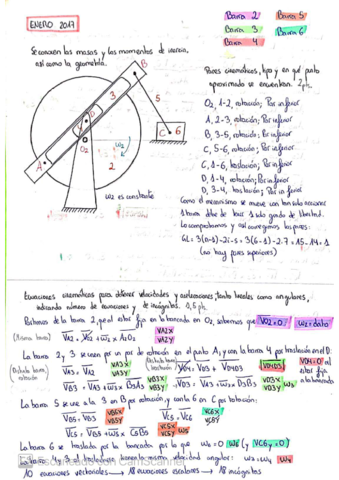 ENERO 2017
Barra 2 Barra 5
Barra 3 Barra 6
Barra 4
Se conocen las masas y los momentos de inercia,
así como la geometría.
Pares cinemáticos, tipo y en qué punto
aproximado se encuentran. 2 ph.
O2, 1-2, rotación; Par inferior
A, 2-3, rotación; Par inferior
B, 3-5, rotación; Par inferior
C, 5-6, rotación; Par inferior
C, 1-6, traslación; Par inferior
D, 1-4, rotación; Par inferior
D, 3-4, traslación; Par inferior
B
3
5
D
O2
ω2
2
A
C 6
ω2 es constante
Como el mecanismo se mueve con tan solo accionar
1 barra debe de tener 1 solo grado de libertad.
Lo comprobamos y así corregimos los pares:
GL = 3(n-1)-2i-s = 3(6-1)-2·7 = 15-14 = 1
(no hay pares superiores)
Ecuaciones cinemáticas para obtener velocidades y aceleraciones, tanto lineales como angulares,
indicando número de ecuaciones y de incógnitas. 0,5 ph.
Partimos de la barra 2, que al estar fija en la bancada en O2, sabemos que VO2=0 / ω2=dato
(Misma barra) VA2 = VO2 + ω2 x A2O2 VA2X VA2Y
La barra 2 y 3 se unen por un par de rotación en el punto A, y con la barra 4 por traslación en el D:
VA3 = VA2 VA3X VA3Y
VD4 = VD3 + VD4D3 VD4D3
VD4=0 al estar fijo a la bancada
VB3 = VA3 + ω3 x B3A3 VB3X VB3Y
VD3 = VA3 + ω3 x D3A3 VD3X VD3Y ω3
La barra 5 se une a la 3 en B por rotación, y con la 6 en C por rotación:
VB5 = VB3 VB5X VB5Y
VC5 = VC6 VC6X VC6Y
VC5 = VB5 + ω5 x C5B5 VC5X VC5Y ω5
La barra 6 se traslada por la bancada por lo que ω6=0 ω6 (y VC6y=0)
La barra 4 y 3 al trasladarse tienen la misma velocidad angular: ω3=ω4 ω4
10 ecuaciones vectoriales → 18 ecuaciones escalares → 18 incógnitas